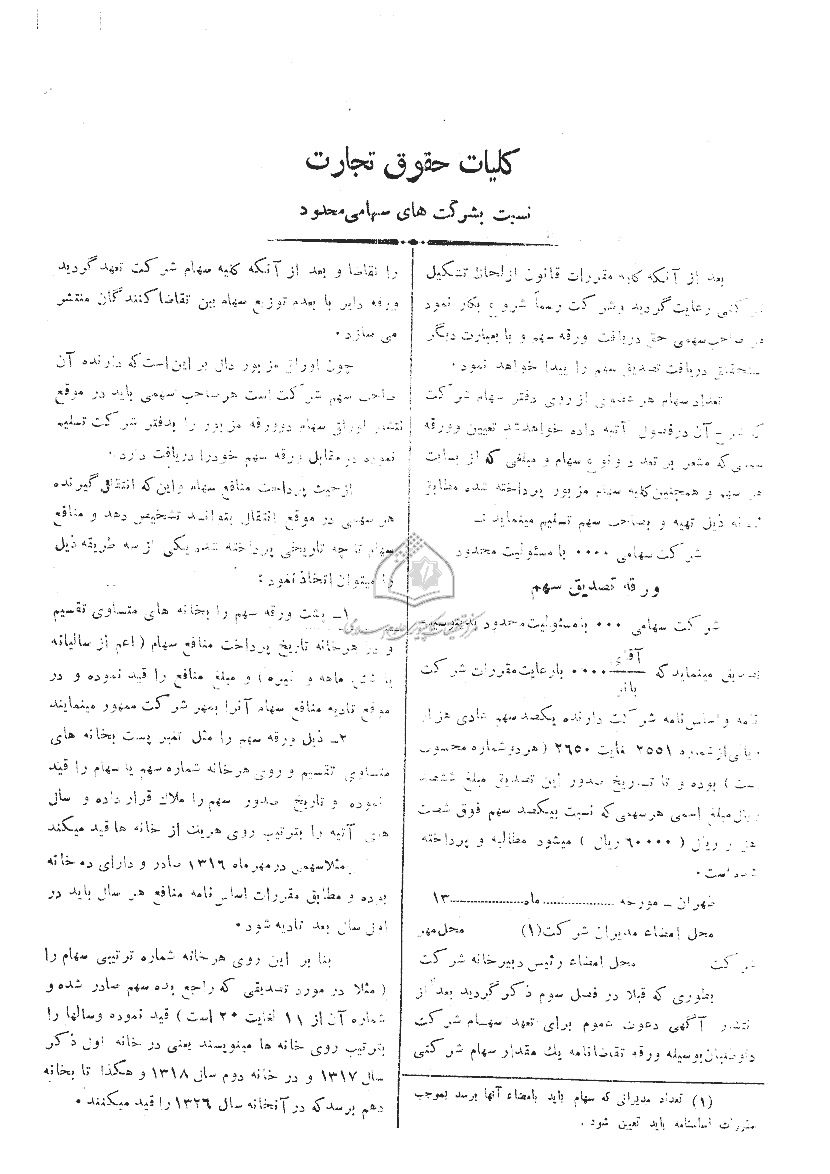 کلیات حقوق تجارت
نسبت بشرکت های سهامی محدود
بعد از آنکه کلیه مقررات قانون از لحاظ تشکیل
شرکتی رعایت گردید و شرکت رسماً شروع بکار نمود
هر صاحب سهمی حق دریافت ورقه سهم و یا بعبارت دیگر
استحقاق دریافت تصدیق سهم را پیدا خواهد نمود.
تعداد سهام هر عضوی از روی دفتر سهام شرکت
که شرح آن در فصول آتیه داده خواهد شد تعیین و ورقه
سهمی که مشعر بر تعداد و نوع سهام و مبلغی که از بابت
هر سهم و همچنین کلیه سهام مزبور پرداخته شده مطابق
نمونه ذیل تهیه و بصاحب سهم تسلیم مینماید ـ
شرکت سهامی ۰۰۰۰ با مسئولیت محدود
ورقه تصدیق سهم
شرکت سهامی ۰۰۰ با مسئولیت محدود بدینوسیله
تصدیق مینماید که آقای/بانو ۰۰۰۰ با رعایت مقررات شرکت
نامه و اساس نامه شرکت دارنده یکصد سهم عادی هزار
ریالی از شماره ۲۵۵۱ لغایت ۲۶۵۰ ( هر دو شماره محسوب
است ) بوده و تا تاریخ صدور این تصدیق مبلغ ششصد
ریال مبلغ اسمی هر سهمی که نسبت بیکصد سهم فوق شصت
هزار ریال ( ۶۰۰۰۰ ریال ) میشود مطالبه و پرداخته
شده است.
طهران ـ مورخه .................. ماه .................. ۱۳
محل امضاء مدیران شرکت (۱) محل مهر
شرکت محل امضاء رئیس دبیرخانه شرکت
بطوری که قبلا در فصل سوم ذکر گردید بعد از
انتشار آگهی دعوت عموم برای تعهد سهام شرکت
داوطلبان بوسیله ورقه تقاضانامه یك مقدار سهام شرکتی
(۱) تعداد مدیرانی که سهام باید بامضاء آنها برسد بموجب
مقررات اساسنامه باید تعیین شود .
را تقاضا و بعد از آنکه کلیه سهام شرکت تعهد گردید
ورقه دایر با بعدم توزیع سهام بین تقاضا کنندگان منتشر
می سازد.
چون اوراق مزبور دال بر این است که دارنده آن
صاحب سهم شرکت است هر صاحب سهمی باید در موقع
انتشار اوراق سهام دوورقه مزبور را بدفتر شرکت تسلیم
نموده در مقابل ورقه سهم خود را دریافت دارد.
از حیث پرداخت منافع سهام و این که انتقال گیرنده
هر سهمی در موقع انتقال بتواند تشخیص دهد و منافع
سهام تا چه تاریخی پرداخته شده یکی از سه طریقه ذیل
را میتوان اتخاذ نمود :
۱ـ پشت ورقه سهم را بخانه های متساوی تقسیم
و در هر خانه تاریخ پرداخت منافع سهام ( اعم از سالیانه
یا شش ماهه و غیره ) و مبلغ منافع را قید نموده و در
موقع تادیه منافع سهام آنرا بمهر شرکت ممهور مینمایند
۲ـ ذیل ورقه سهم را مثل تمبر پست بخانه های
متساوی تقسیم و روی هر خانه شماره سهم یا سهام را قید
نموده و تاریخ صدور سهم را ملاك قرار داده و سال
های آتیه را بترتیب روی هر یك از خانه ها قید میکند
مثلا سهمی در مهر ماه ۱۳۱۶ صادر و دارای ده خانه
بوده و مطابق مقررات اساس نامه منافع هر سال باید در
اول سال بعد تادیه شود .
بنا بر این روی هر خانه شماره ترتیبی سهام را
( مثلا در مورد تصدیقی که راجع بده سهم صادر شده و
شماره آن از ۱۱ لغایت ۲۰ است ) قید نموده و سالها را
بترتیب روی خانه ها مینویسند یعنی در خانه اول ذکر
سال ۱۳۱۷ و در خانه دوم سال ۱۳۱۸ و هکذا تا بخانه
دهم برسد که در آنخانه سال ۱۳۲۶ را قید میکنند .